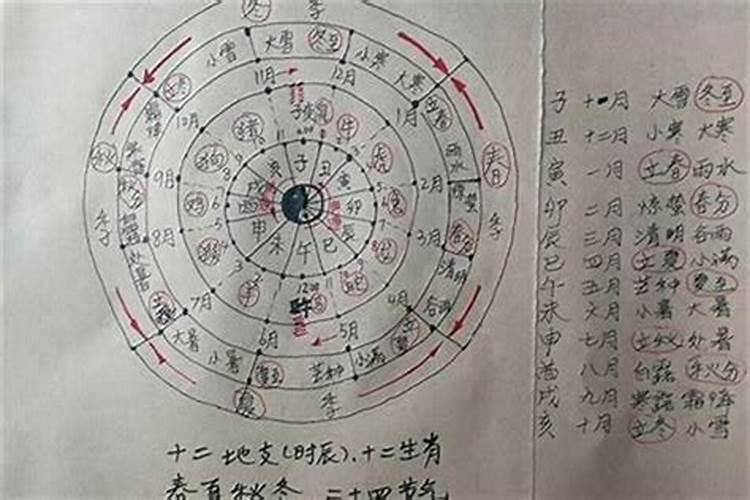 冬 季
小雪 大雪 冬至 小寒 大寒
立冬 立春
11月 12月
10月 1月
子 丑
猪 牛
狗 虎
亥 子 丑 寅
秋 春
9月 2月
雨水
秋分 惊蛰
鸡 兔
戌 酉 卯 辰
季 季
8月 3月
春分
清明
处暑
申 未 午 巳
猴
羊 蛇
谷雨
7月 4月
6月 5月
大暑 小暑 夏至 芒种 小满
夏 季
子 十一月 大雪 冬至
丑 十二月 小寒 大寒
寅 一月 立春 雨水
卯 二月 惊蛰 春分
辰 三月 清明 谷雨
巳 四月 立夏 小满
午 五月 芒种 夏至
未 六月 小暑 大暑
申 七月 立秋 处暑
酉 八月 白露 秋分
戌 九月 寒露 霜降
亥 十月 立冬 小雪
十二地支(时辰)、十二生肖
春夏秋冬 二十四节气